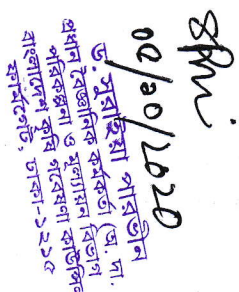 ০৫/১০/২০২০
ড. সুরাইয়া পারভীন
প্রধান বৈজ্ঞানিক কর্মকর্তা (চ. দা.)
পরিকল্পনা ও মূল্যায়ন বিভাগ
বাংলাদেশ কৃষি গবেষণা কাউন্সিল
ফার্মগেট, ঢাকা-১২১৫